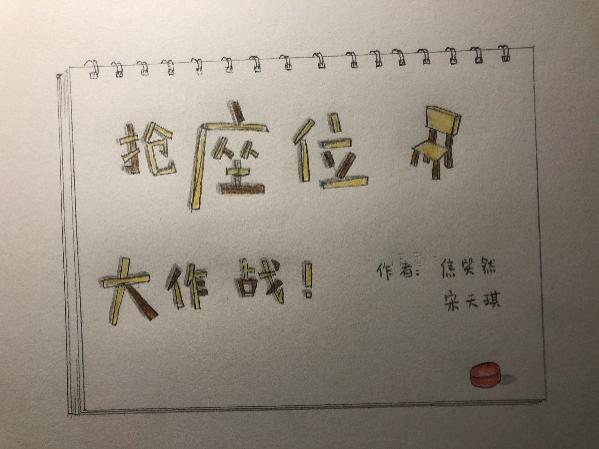 抢座位
大作战!
作者: 焦笑然
宋天琪